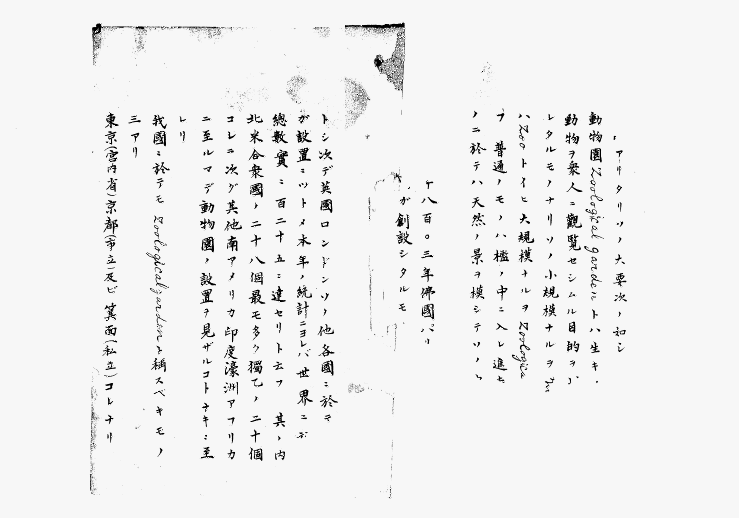 、アリタリソノ大要次ノ如シ
動物園Zoological gardenトハ生キ、
動物ヲ衆人ニ觀覧セシムル目的ヲ以
レタルモノナリソノ小規模ナルヲ
ハZooトイヒ大規模ナルヲZoologica
フ 普通ノモノハ檻ノ中ニ入レ進
ノニ於テハ天然ノ景ヲ模シテソノ
千八百〇三年佛國パリ
ガ創設シタルモ
トシ次デ英國ロンドンソノ他各國ニ於テ
ガ設置ニツトメ本年ノ統計ニヨレバ世界ニ於
總數實ニ百二十五ニ達セリト云フ 其ノ内
北米合衆國ノ二十八個最モ多ク獨乙ノ二十個
コレニ次グ其他南アメリカ印度濠洲アフリカ
ニ至ルマデ動物園ノ設置ヲ見ザルコトナキニ至
レリ
我國ニ於テモZoological gardenト稱スベキモノ
三アリ
東京(宮内省)京都(市立)及ビ箕面(私立)コレナリ